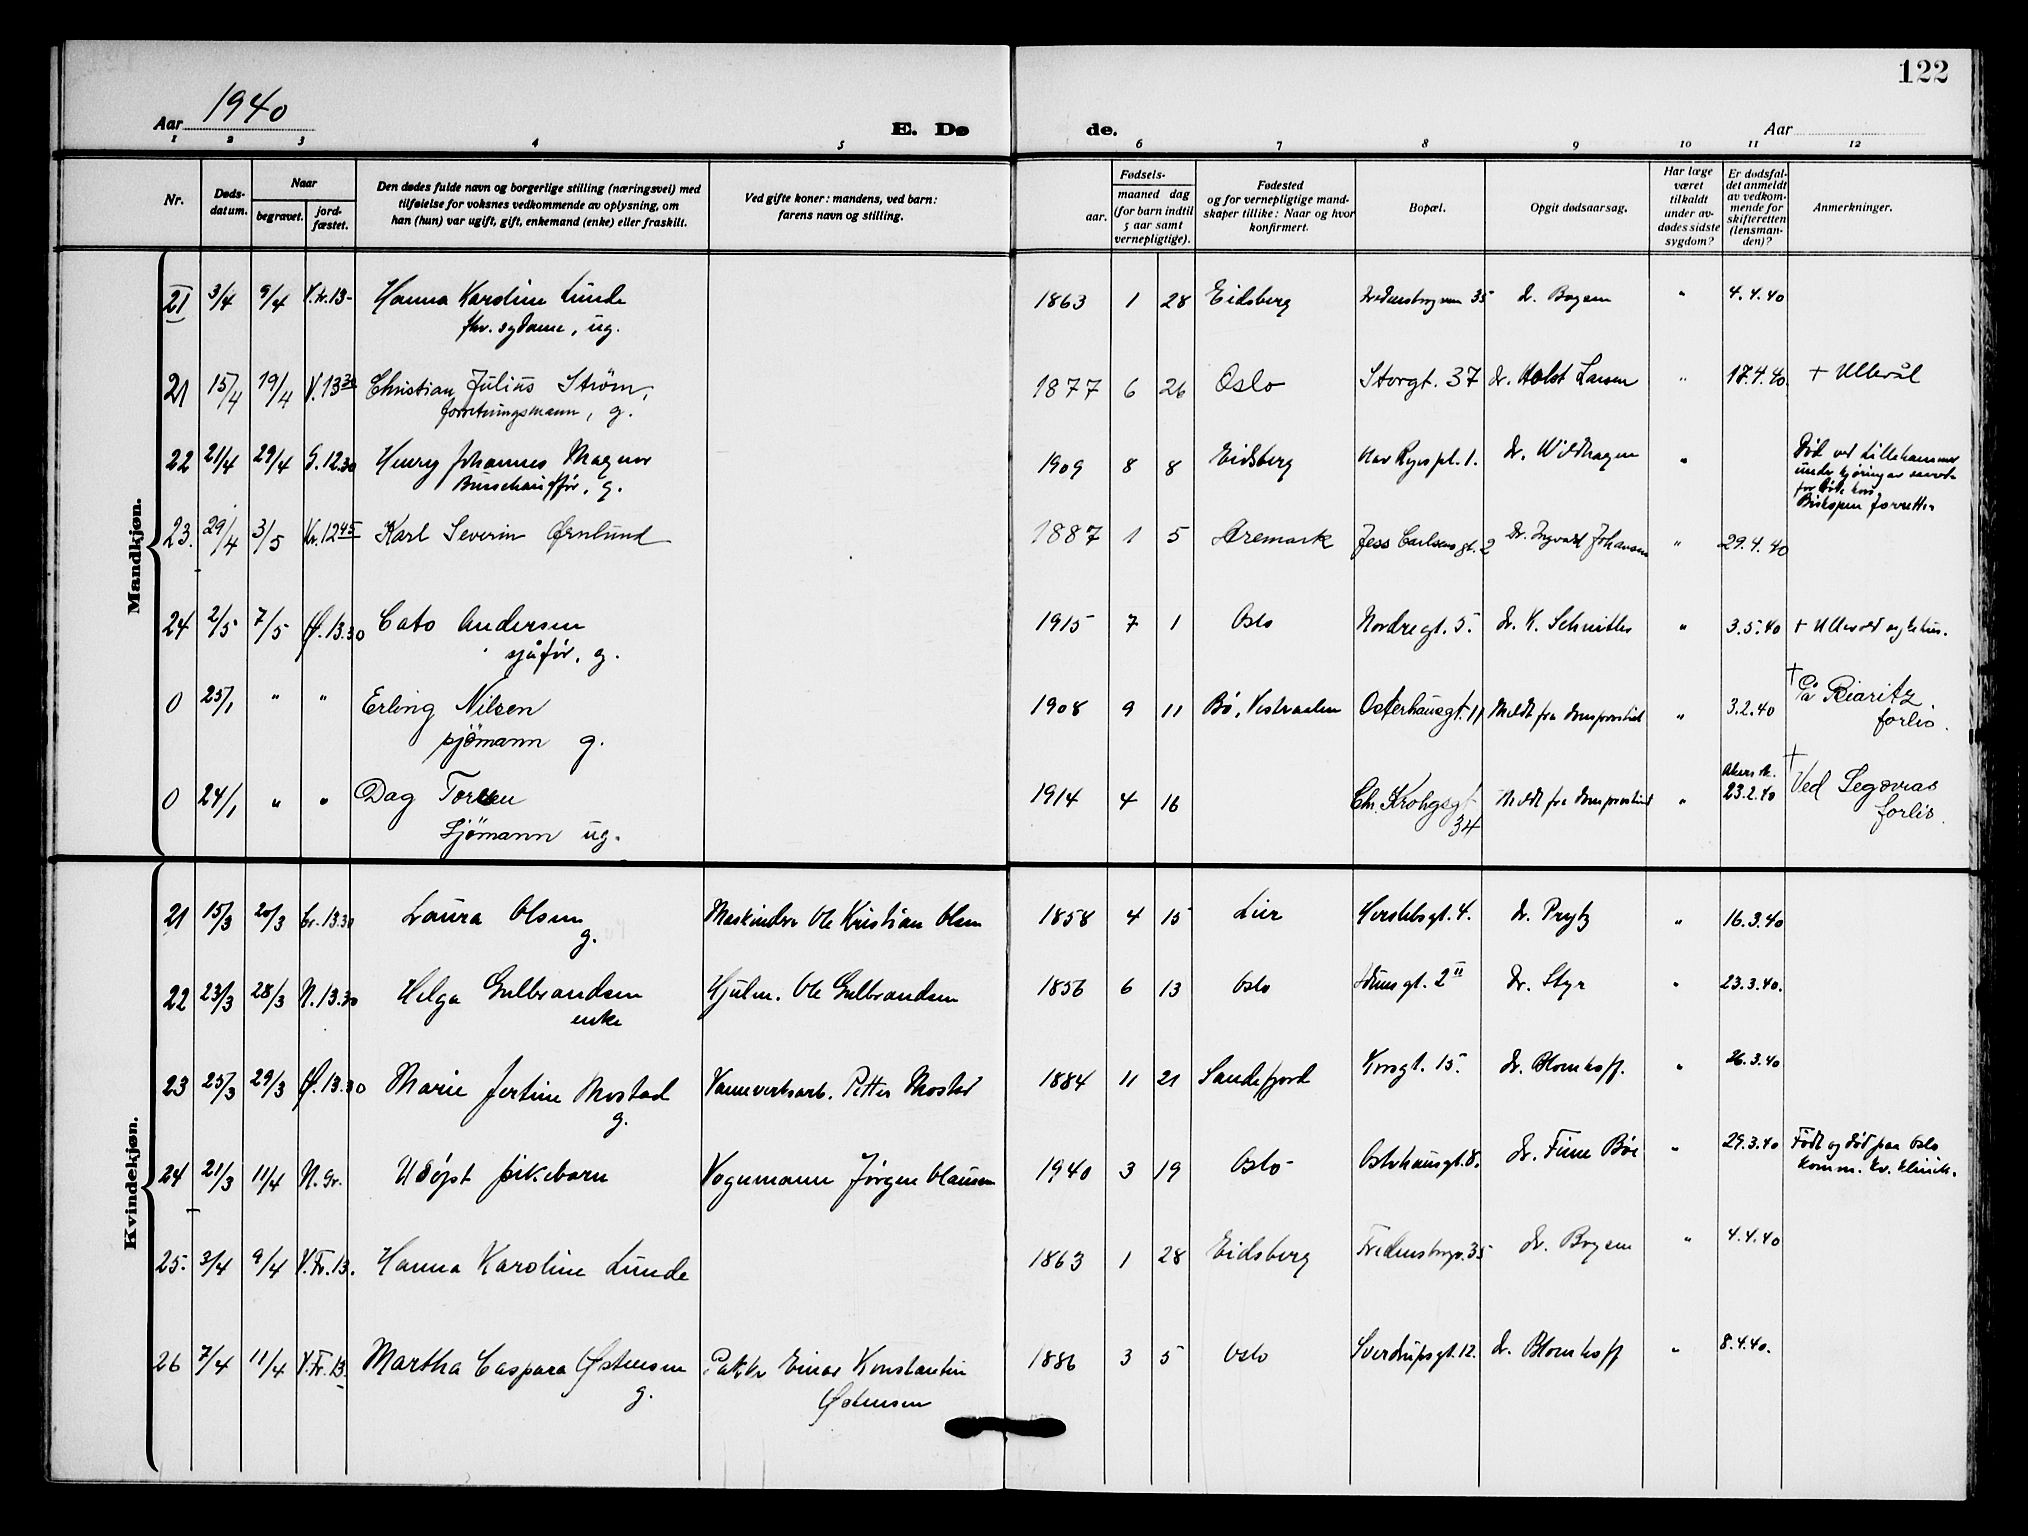 122
Aar 1940 E. Dø de. Aar
1 2 3 4 5 6 7 8 9 10 11 12
Nr.
Døds-
datum.
Naar
begravet.
jord-
fæstet.
Den dødes fulde navn og borgerlige stilling (næringsvei) med
tilføielse for voksnes vedkommende av oplysning, om
han (hun) var ugift, gift, enkemand (enke) eller fraskilt.
Ved gifte koner: mandens, ved barn:
farens navn og stilling.
Fødsels-
aar.
maaned dag
(for barn indtil
5 aar samt
vernepligtige).
Fødested
og for vernepligtige mand-
skaper tillike: Naar og hvor
konfirmert.
Bopæl.
Opgit dødsaarsag.
Har læge
været
tilkaldt
under av-
dødes sidste
sygdom?
Er dødsfal-
det anmeldt
av vedkom-
mende for
skifteretten
(lensman-
den)?
Anmerkninger.
Mandkjøn.
21 3/4 9/4 V.Kr.13- Hanna Karoline Lunde 1863 1 28 Eidsberg 35 dr. Bogen " 4.4.40
fhv. sydame, ug.
21 15/4 19/4 V.13 30 Christian Julius Strøm, 1877 6 26 Oslo Storgt. 37 dr. Holst Larsen " 17.4.40 + Ullevål
forretningsmann, g.
22 21/4 29/4 G.12.30 Henry Johannes Magnor 1909 8 8 Eidsberg Olav Ryes pl. 1. dr. Wildhagen " Død ved Lillehammer
Busschauffør, g. under kjøring av
for Røde Kors
Bispen forretter
23. 29/4 3/5 Kr.12 45 Karl Severin Ørnlund 1887 1 5 Aremark Jess Carlsens gt. 2 Dr. Ingvald Johansen " 29.4.40
24 2/5 7/5 Ø.13.30 Cato Andersen 1915 7 1 Oslo Nordregt. 5. dr. K. Schnitler " 3.5.40 + Ullevål sykehus.
sjåfør, g.
0 25/1 " " Erling Nilsen 1908 9 11 Bø, Vesteraalen Osterhausgt. 11 Meldt fra domprostiet " 3.2.40 + På Biaritz
sjømann g. forlis.
0 24/1 " " Dag Torsen 1914 4 16 Ch. Krohgsgt. Meldt fra domprostiet " 23.2.40 + Ved Segovias
Sjømann ug. 34 forlis.
Kvindekjøn.
21 15/3 20/3 Cr.13.30 Laura Olsen Maskindr. Ole Kristian Olsen 1858 4 15 Lier Herslebsgt. 4. dr. Prytz " 16.3.40
g.
22 23/3 28/3 N.13.30 Helga Gulbrandsen Hjulm. Ole Gulbrandsen 1856 6 13 Oslo 2 II dr. Styr " 23.3.40.
enke
23 25/3 29/3 Ø.13.30 Marie Jertine Mostad Vannverksarb. Petter Mostad 1884 11 21 Sandefjord Korsgt. 15. dr. Blomhoff. " 26.3.40
g.
24 21/3 11/4 N.Gr. Udøpt pikebarn Vognmann Jørgen Clausen 1940 3 19 Oslo Osterhausgt. 8. dr. Finn Bøe " 29.3.40 Født og død paa Oslo
Komm. kv. klinikk.
25. 3/4 9/4 V.Kr.13. Hanna Karoline Lunde 1863 1 28 Eidsberg Fredensborgv. 35 dr. Bogen " 4.4.40
26 7/4 11/4 V.Kr.13 Martha Caspara Østensen Pakker Einar Konstantin 1886 3 5 Oslo Sverdrupsgt. 12. dr. Blomhoff " 8.4.40.
g. Østensen